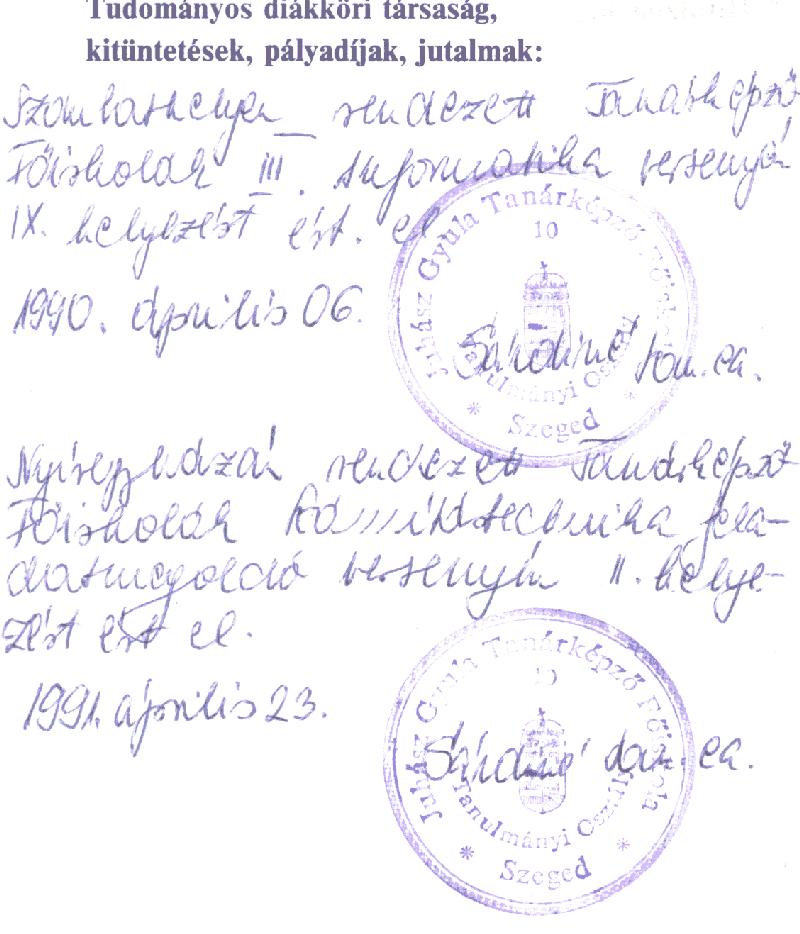 Tudományos diákköri társaság,
kitüntetések, pályadíjak, jutalmak:
Szombathelyen rendezett Tanárképző
Főiskolák III. Informatika versenyén
IX. helyezést ért. el
1990. április 06.
Sándorné tan. ea.
Juhász Gyula Tanárképző Főiskola
10
Tanulmányi Osztály
* Szeged *
Nyíregyházán rendezett Tanárképző
Főiskolák Számítástechnika fela-
datmegoldó versenyén II. helye-
zést ért el.
1991. április 23.
tan. ea.
Juhász Gyula Tanárképző Főiskola
10
Tanulmányi Osztály
* Szeged *